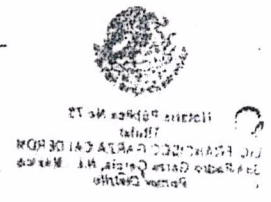 Notaría Pública No 75
Titular
LIC. FRANCISCO GARZA CALDERON
San Pedro Garza García, N.L. México
Primer Distrito